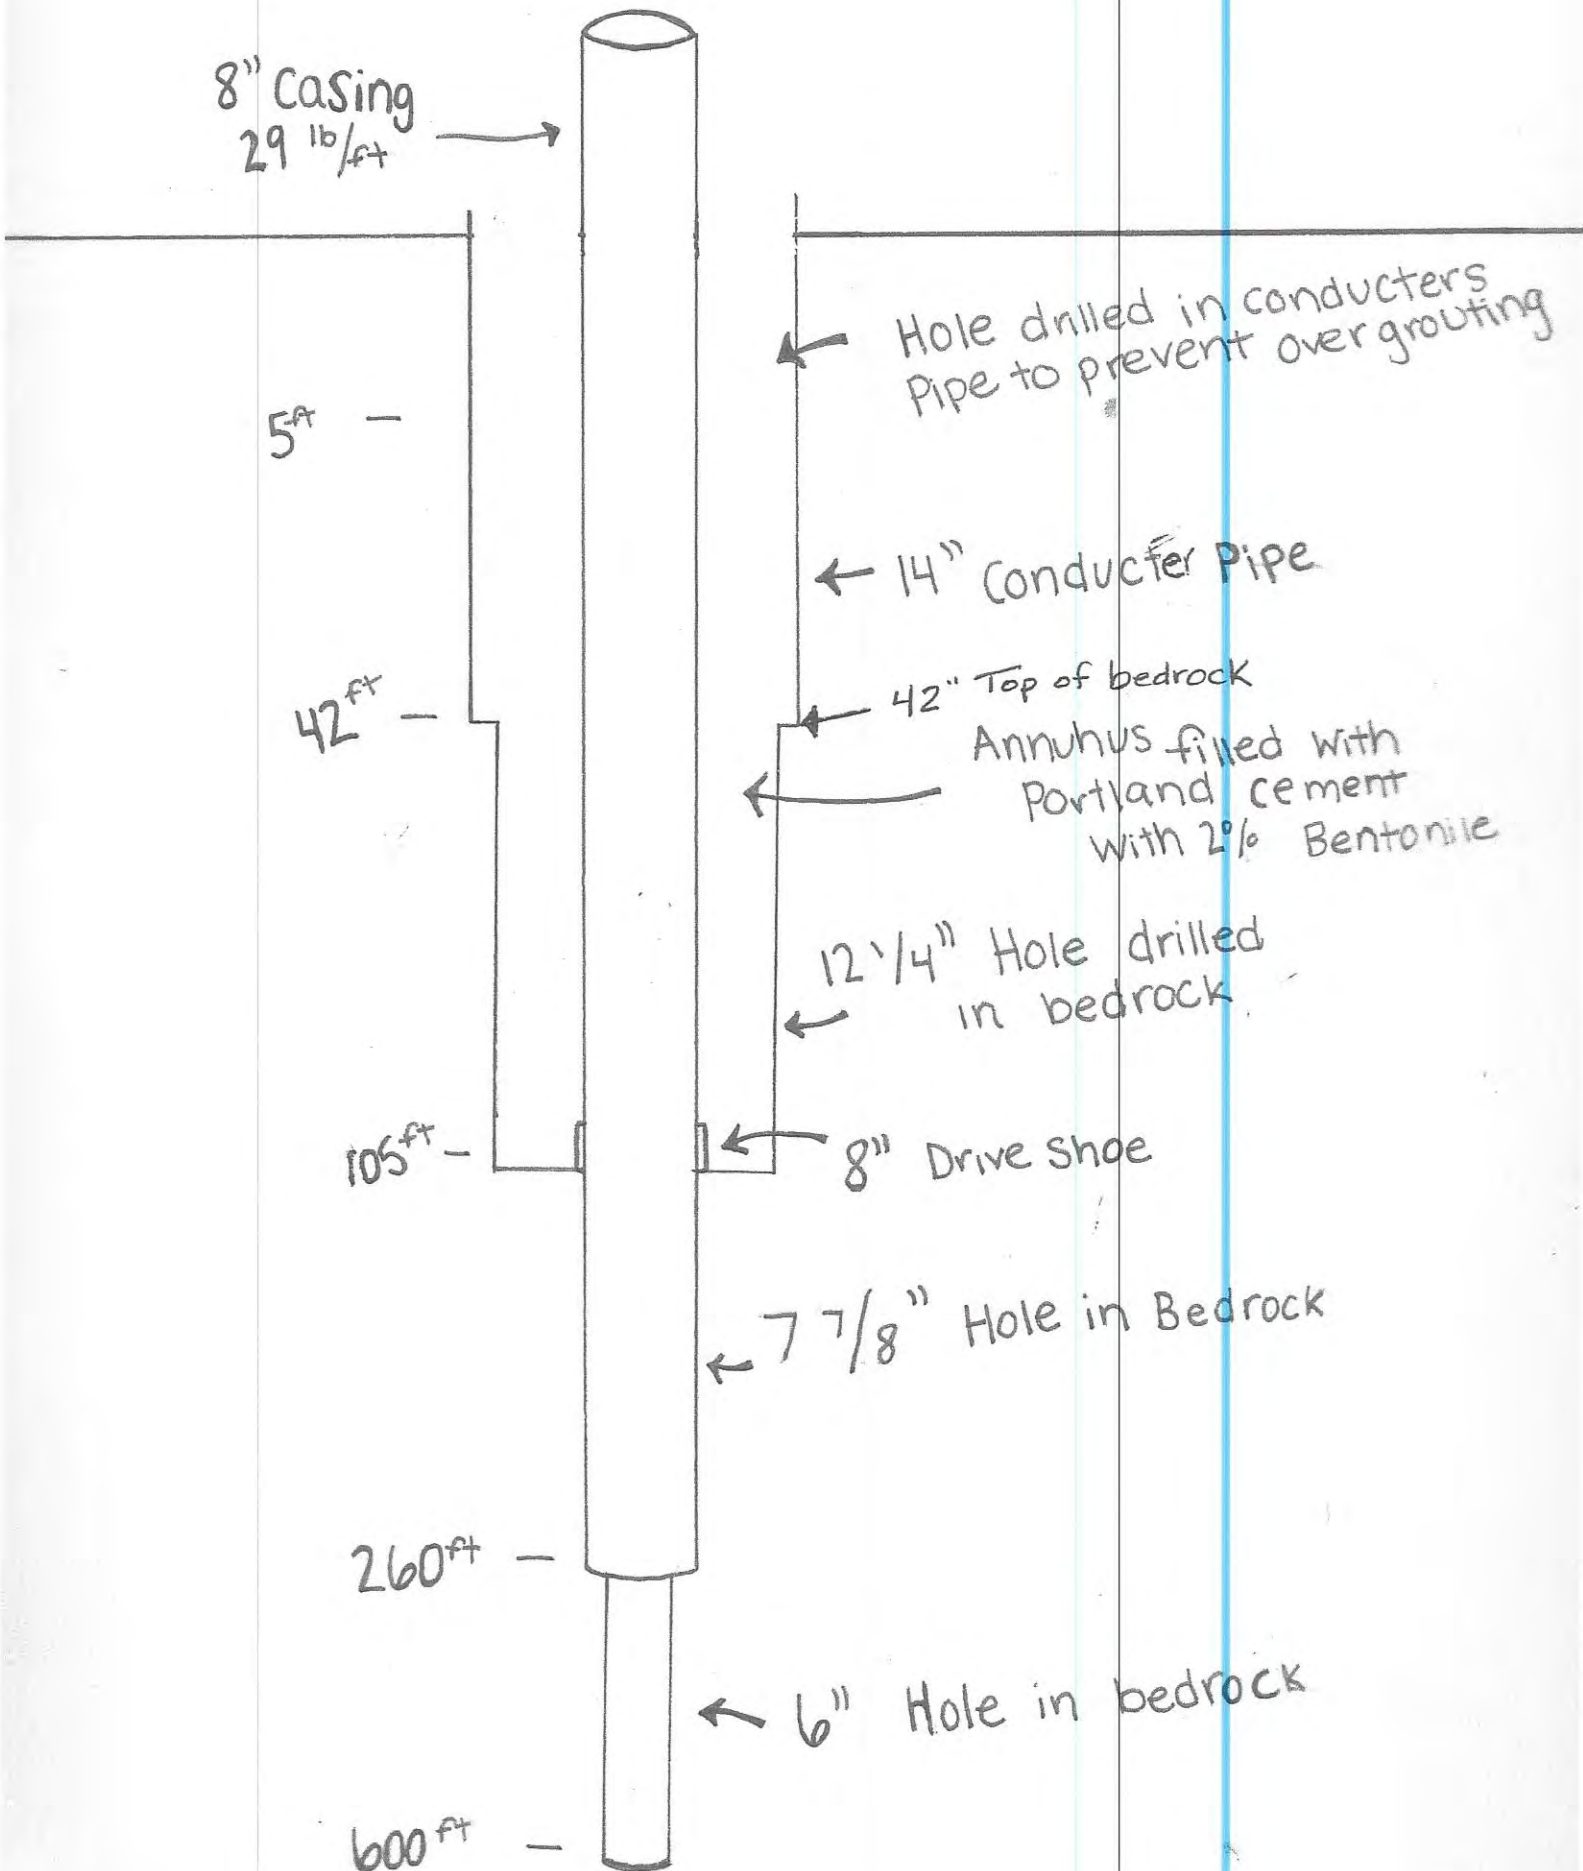 8" Casing
29 lb/ft
Hole drilled in conducters
Pipe to prevent over grouting
5ft
14" Conducter Pipe
42ft
42" Top of bedrock
Annuhus filled with
Portland cement
With 2% Bentonile
12 1/4" Hole drilled
in bedrock
105ft
8" Drive Shoe
7 7/8" Hole in Bedrock
260ft
6" Hole in bedrock
600ft